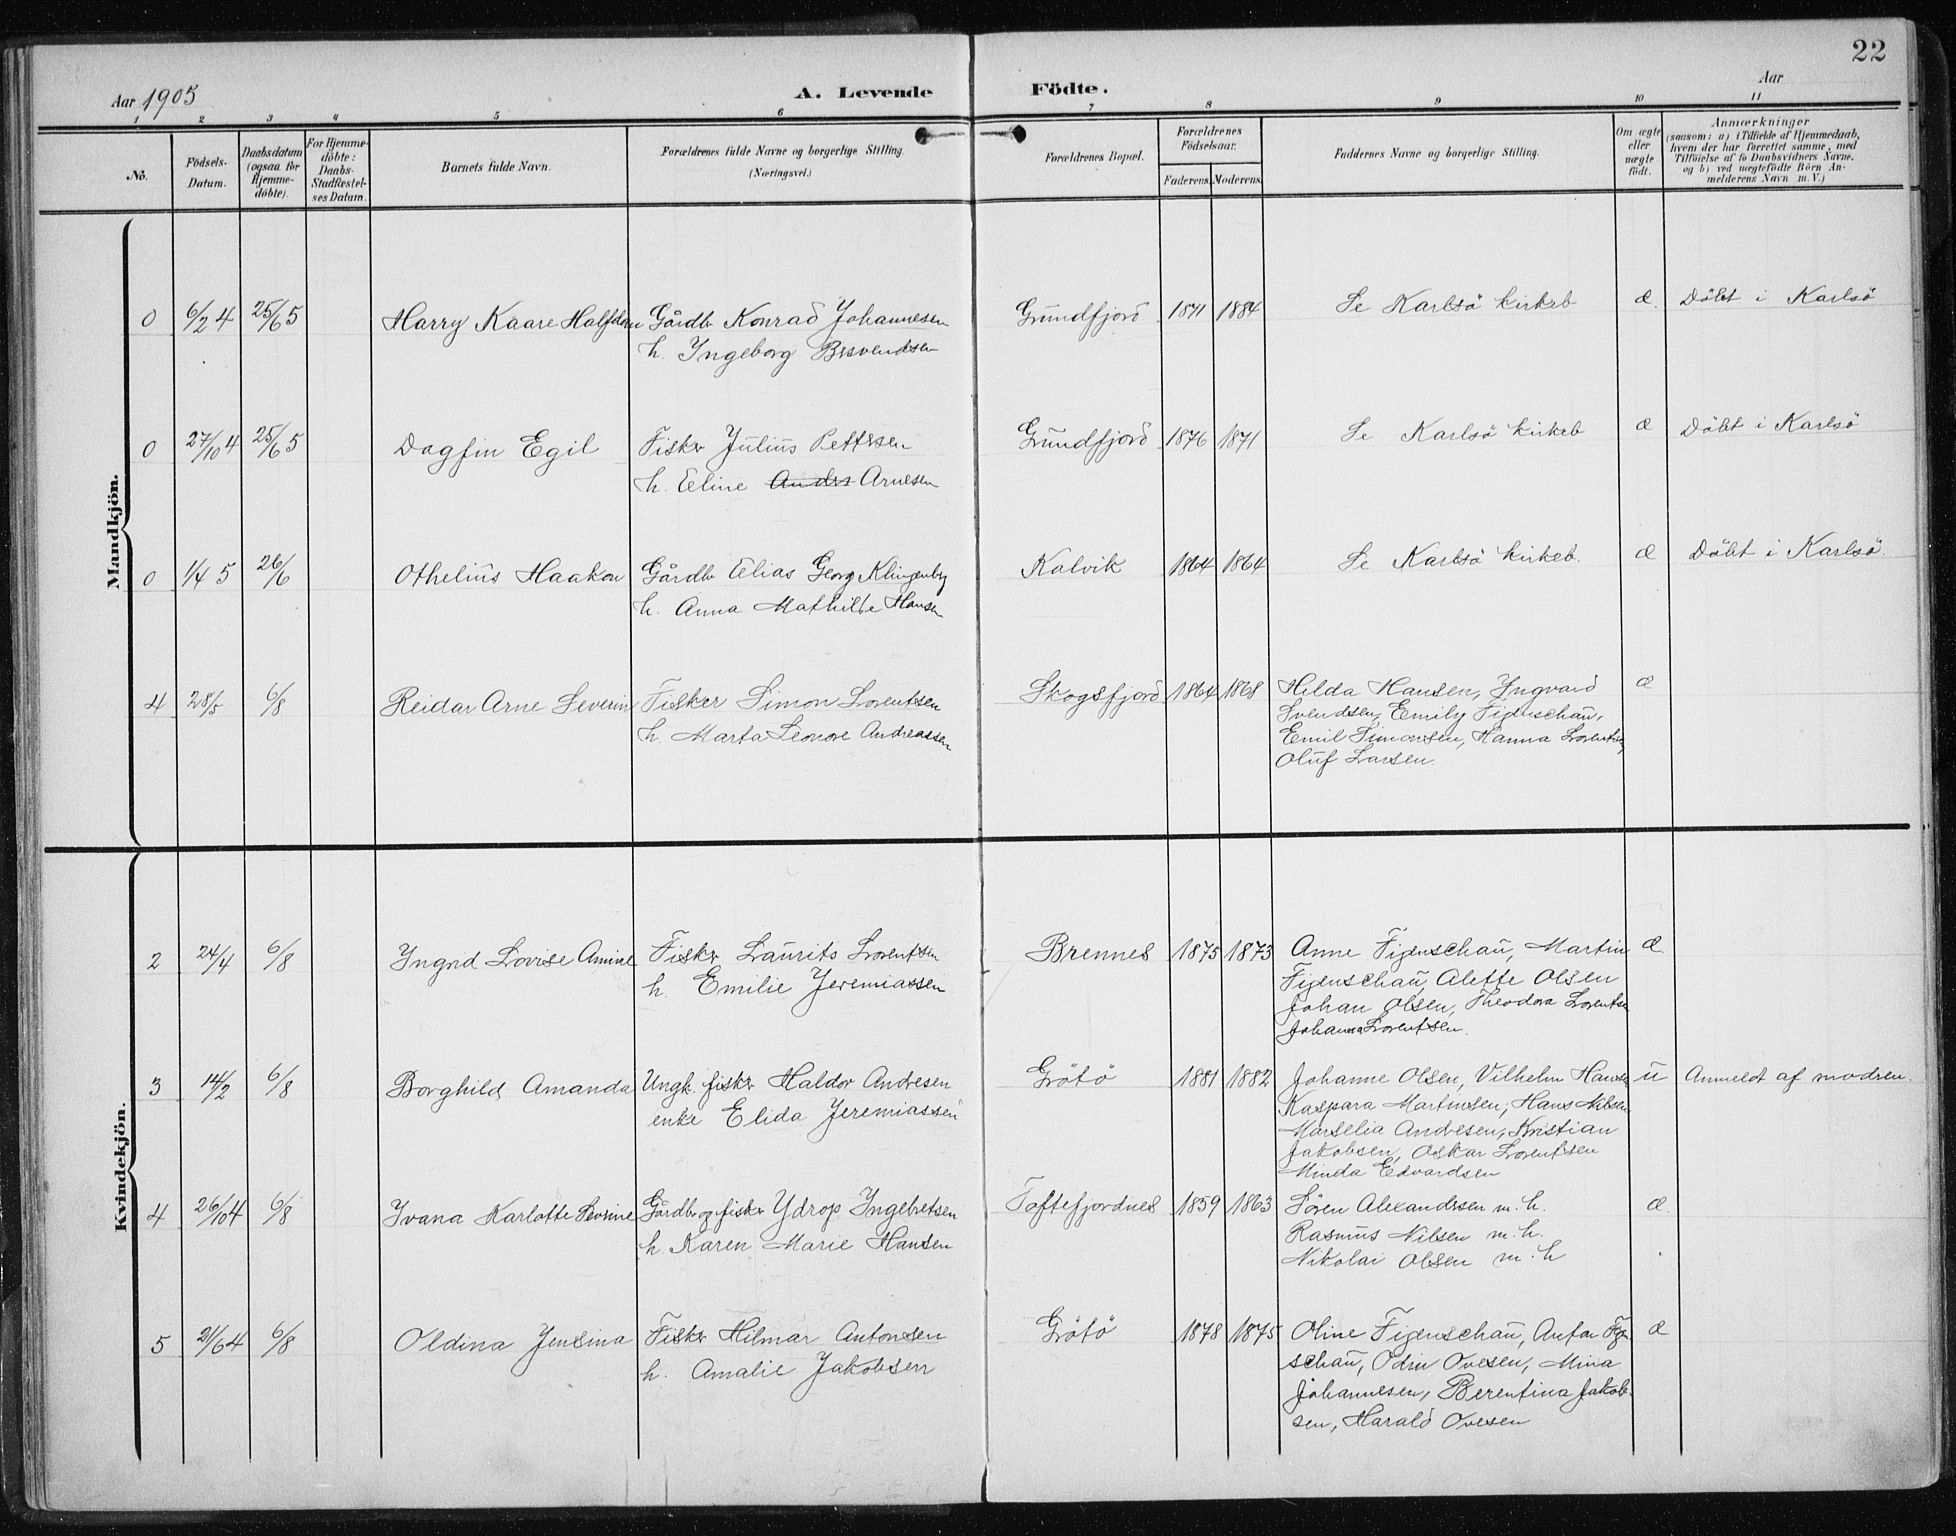 22
Aar 1905
A. Levende
Födte.
Aar
1 2 3 4 5 6 7 8 9 10 11
No.
Födsels-
Datum.
Daabsdatum
(ogsaa for
Hjemme-
döbte).
For Hjemme-
döbte:
Daabs-
Stadfæstel-
ses Datum.
Barnets fulde Navn.
Forældrenes fulde Navne og borgerlige Stilling.
(Næringsvei.)
Forældrenes Bopæl.
Forældrenes
Födselsaar.
Faderens. Moderens.
Faddernes Navne og borgerlige Stilling.
Om ægte
eller
uægte
födt.
Anmærkninger
(saasom: a) i Tilfælde af Hjemmedaab,
hvem der har forrettet samme, med
Tilföielse af to Daabsvidners Navne,
og b) ved uægtefödte Börn An-
melderens Navn m. V.)
Mandkjön.
0 6/2 4 25/6 5 Harry Kaare Halfdan Gårdbr Konrad Johannesen Grundfjord 1871 1884 Se Karlsö kirkeb æ. Döbt i Karlsö
h. Ingeborg Bersvendsen
0 27/10 4 25/6 5 Dagfin Egil Fisker Julius Pettersen Grundfjord 1876 1871 Se Karlsö kirkeb æ Döbt i Karlsö
h. Eline Andrs Arnesen
0 1/4 5 26/6 Othelius Haakon Gårdbr Elias Georg Klingenberg Kalvik 1864 1864 Se Karlsö kirkeb. æ Döbt i Karlsö.
h. Anna Mathilde Hansen
4 28/5 6/8 Reidar Arne Severin Fisker Simon Lorentsen Skogsfjord 1864 1868 Hilda Hansen, Ingvard æ
h. Marta Leonore Andreassen Svendsen, Emily Figenschau,
Emil Simonsen, Hanna Lorentsen,
Oluf Larsen.
Kvindekjön.
2 24/4 6/8 Ingrid Lovise Amine Fisker Laurits Lorentsen Brennes 1875 1873 Anne Figenschau, Martin æ.
h. Emilie Jeremiassen Figenschau, Alette Olsen
Johan Olsen, Theodora Lorentsen
Johanna Lorentsen.
3 14/2 6/8 Borghild Amanda Ungk. fisker Haldor Andresen Grötö 1881 1882 Johanne Olsen, Vilhelm Hansen u Anmeldt af modren.
enke Elida Jeremiassen Kaspara Martinsen, Hans Nilsen
Marselia Andresen, Kristian
Jakobsen, Oskar Lorentsen
Minda Edvardsen
4 26/10 4 6/8 Ivana Karlotte Severine Gårdbr og fisker Ydrop Ingebretsen Toftefjordnes 1859 1863 Sören Alexandersen m. h. æ.
h. Karen Marie Hansen Rasmus Nilsen m. h.
Nikolai Olsen m. h
5 21/6 4 6/8 Oldina Jensina Fisker Hilmar Antonsen Grötö 1878 1875 Oline Figenschau, Anton Figen- æ
h. Amalie Jakobsen schau, Odin Ovesen, Mina
Johannesen, Berentina Jakob-
sen, Harald Ovesen